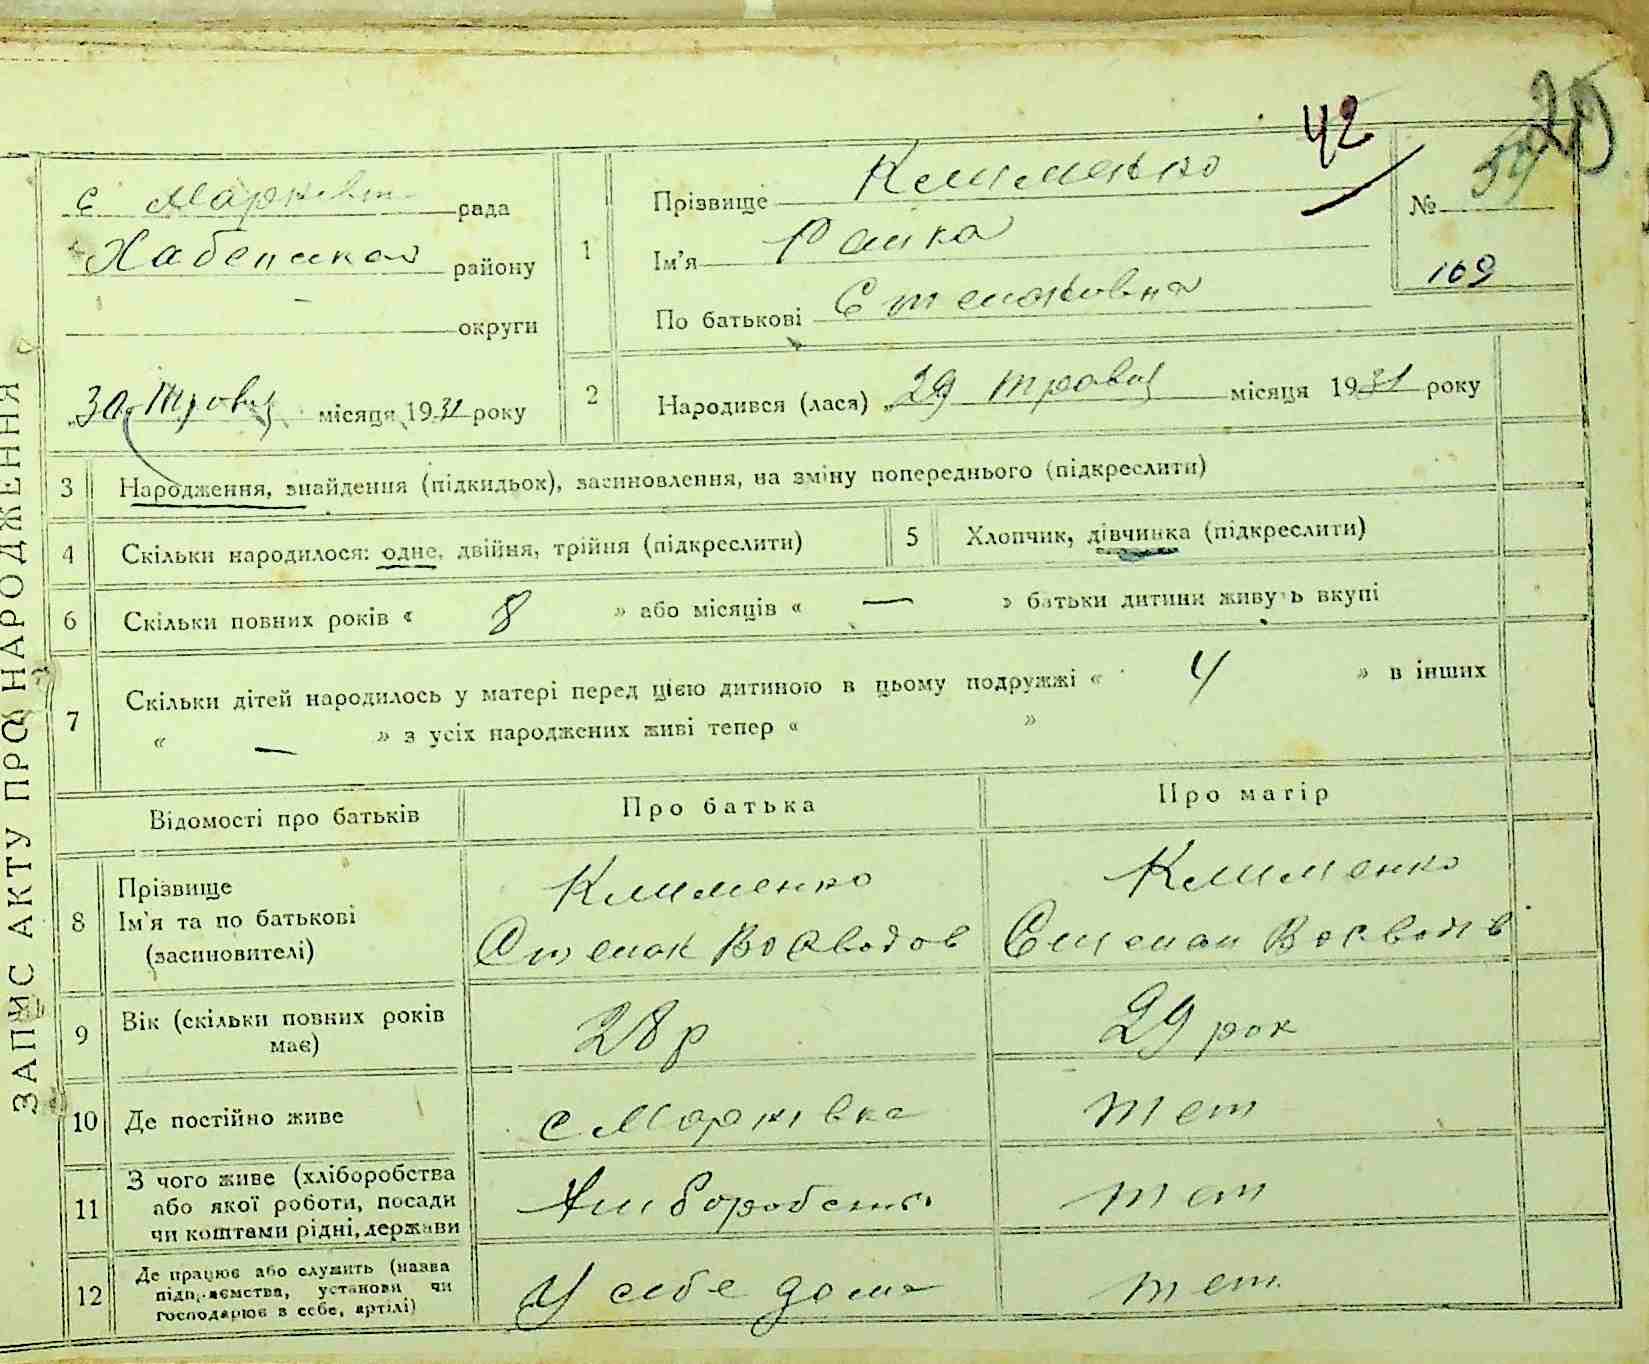 ЗАПИС АКТУ ПРО НАРОДЖЕННЯ
с Марківка рада
Хабенська району
округи
„30„ Травня місяця 1931 року
42
1 Прізвище Клименко
Ім'я
По батькові Степановна
№ 59
29
169
2 Народився (лася) „29 травня місяця 1931 року
3 Народження, знайдення (підкидьок), засиновлення, на зміну попереднього (підкреслити)
4 Скільки народилося: одне, двійня, трійня (підкреслити)
5 Хлопчик, дівчинка (підкреслити)
6 Скільки повних років « 8 » або місяців « — » батьки дитини живуть вкупі
7 Скільки дітей народилось у матері перед цією дитиною в цьому подружжі « 4 » в інших
« — » з усіх народжених живі тепер « »
Відомості про батьків Про батька Про матір
8 Прізвище Ім'я та по батькові (засиновителі)
Клименко
Степан
Клименко
Степан
9 Вік (скільки повних років має) 28 р 29 рок
10 Де постійно живе с Марківка тет
11 З чого живе (хліборобства або якої роботи, посади чи коштами рідні, держави
Хлиборобств. тет
12 Де працює або служить (назва підприємства, установи чи господарює в себе, артілі)
У себе дома тет.